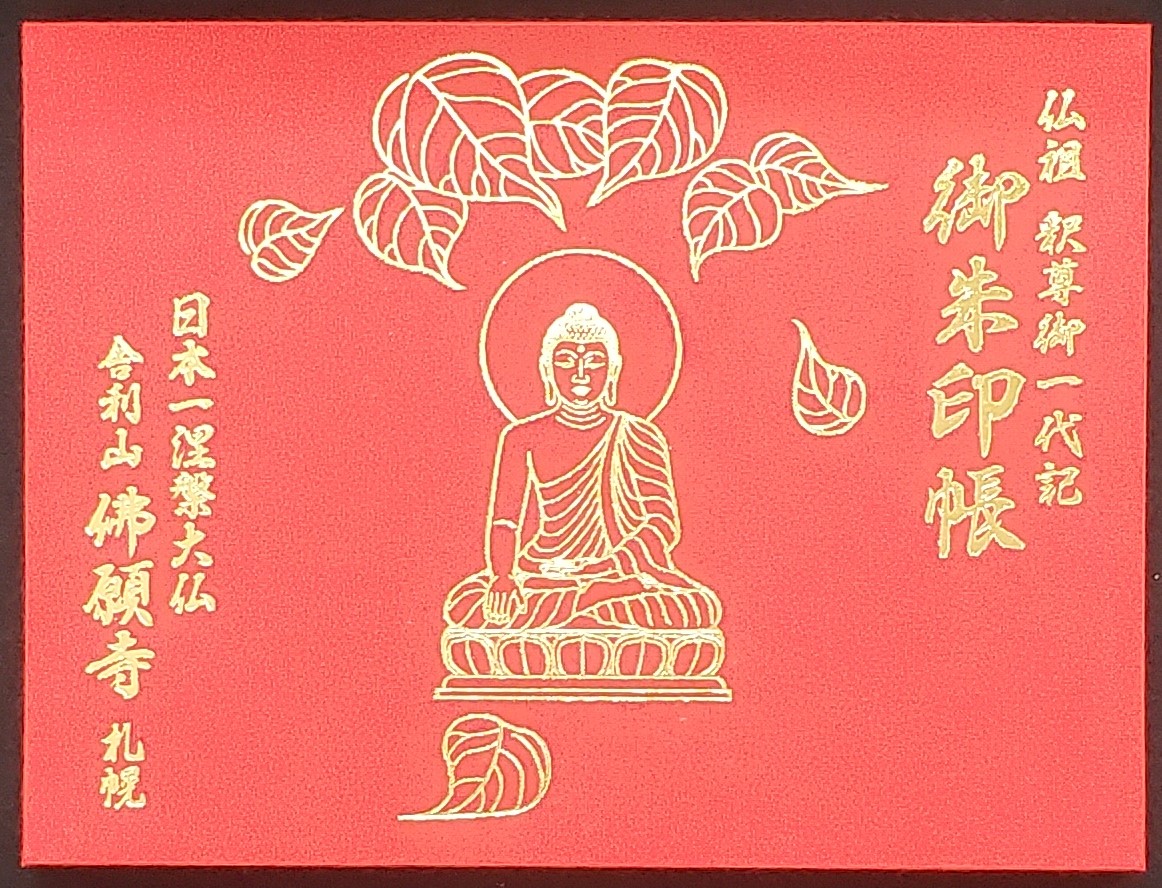 仏祖 釈尊御一代記
御朱印帳
日本一涅槃大仏
舎利山 佛願寺 札幌